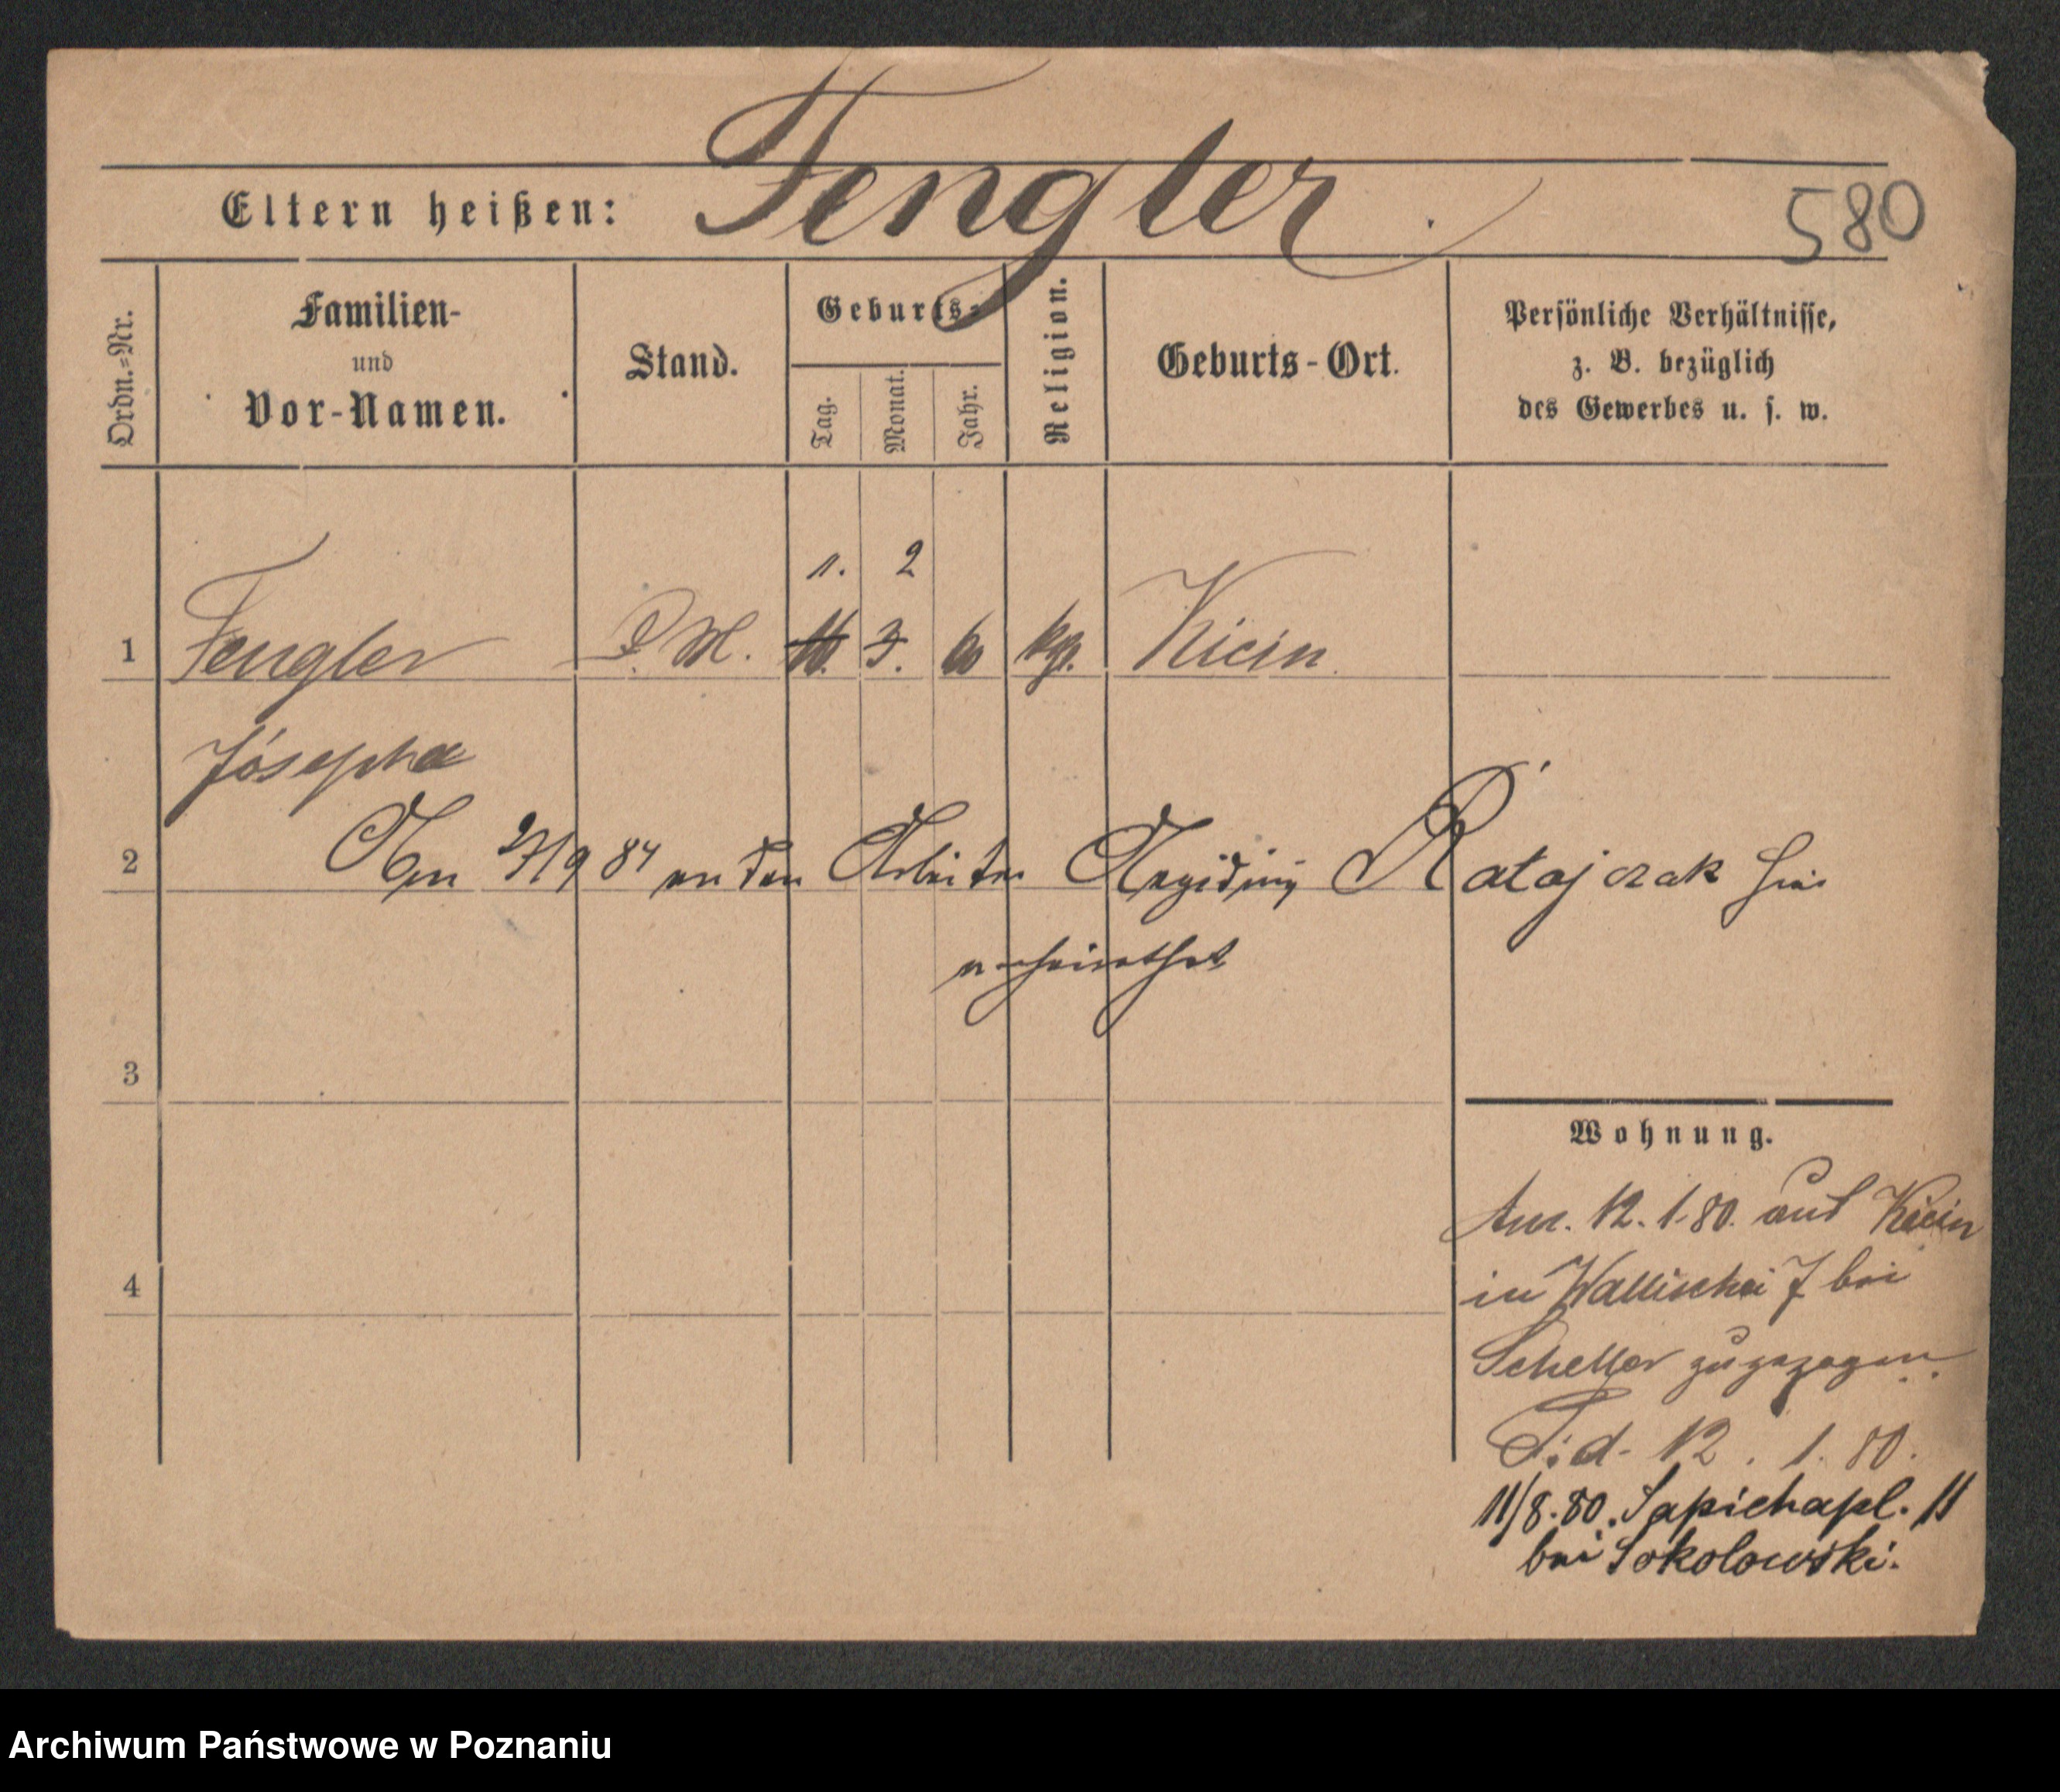 Fengler
Eltern heißen:
580
Ordn.=Nr.
Familien-
und
Vor-Namen.
Stand.
Geburts=
Tag.
Monat.
Jahr.
Religion.
Geburts-Ort.
Persönliche Verhältnisse,
z. B. bezüglich
des Gewerbes u. s. w.
1. 2
1 Fengler D. M. 3. 60 kgl. Kicin
Josepha
2 Am 27/9 84 an den Arbeiter Aegidius Ratajczak hier
verheirathet
3
Wohnung.
Am. 12. 1. 80. aus Kicin
4
in Wallischei 7 bei
Scheller zugezogen.
F. d. 12. 1. 80.
11/8. 80. Sapiehapl. 11
bei Sokolowski.
Archiwum Państwowe w Poznaniu